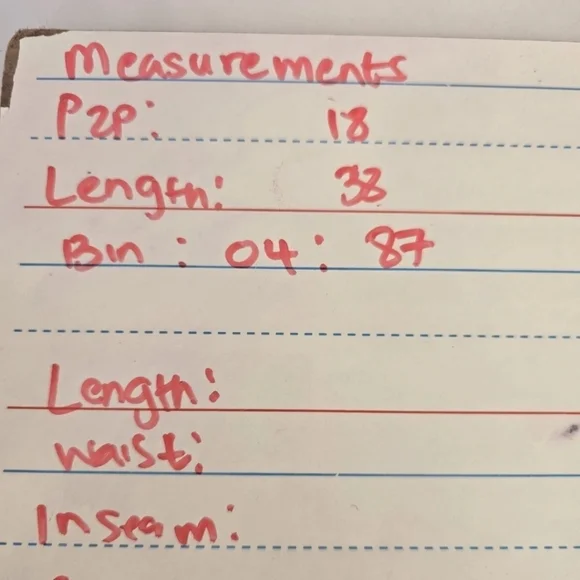 Measurements
P2P: 18
Length: 38
Bin : 04 : 87
Length:
Waist:
Inseam: